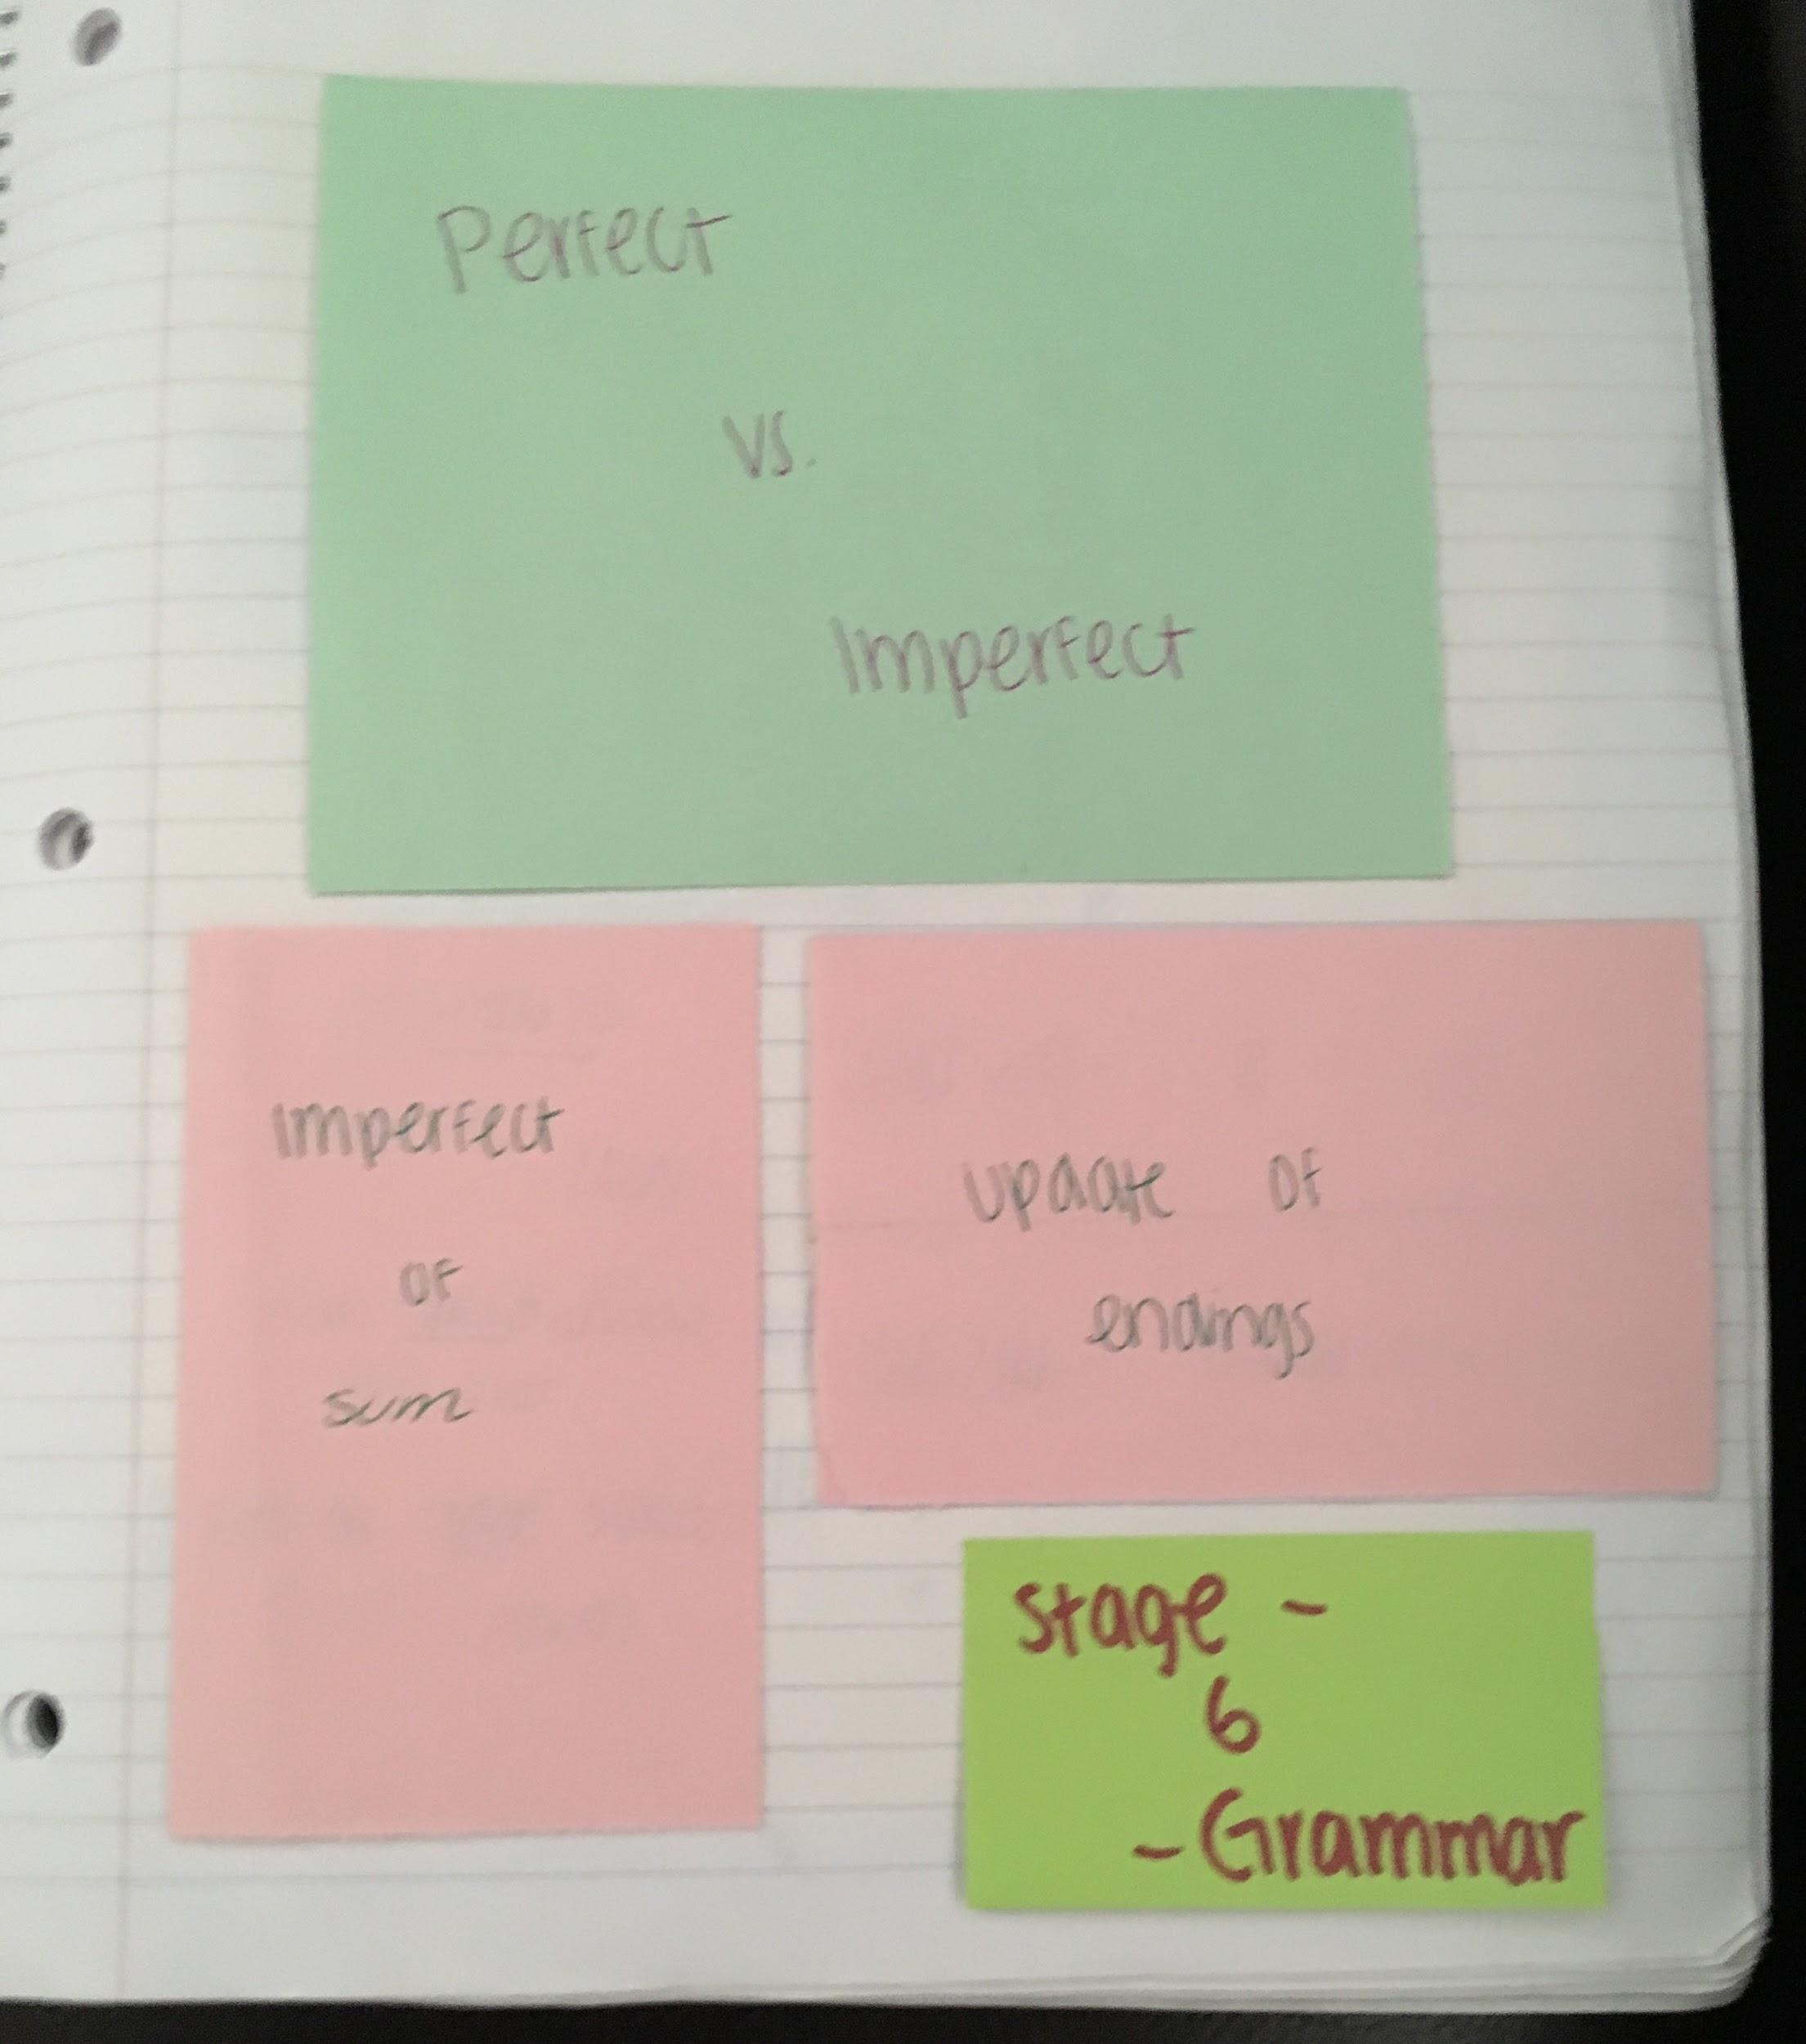 Perfect
vs.
Imperfect
Imperfect
of
sum
update of
endings
Stage -
6
- Grammar